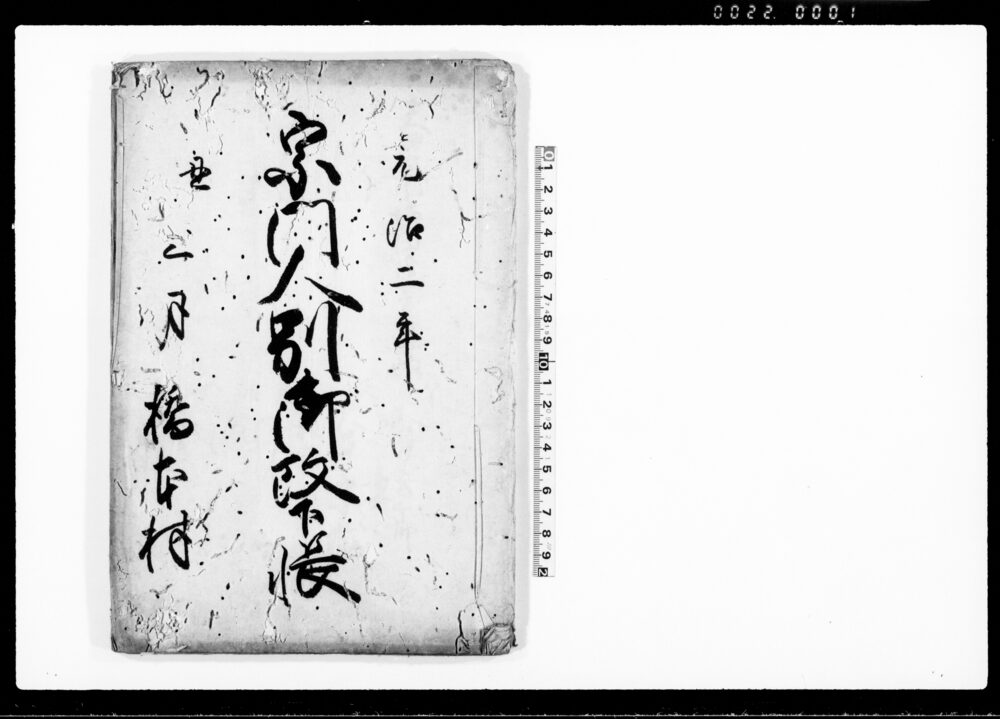 0022 0001
元治二年
宗門人別御改下帳
丑
月
橋本村
0 1 2 3 4 5 6 7 8 9 10 1 2 3 4 5 6 7 8 9 2